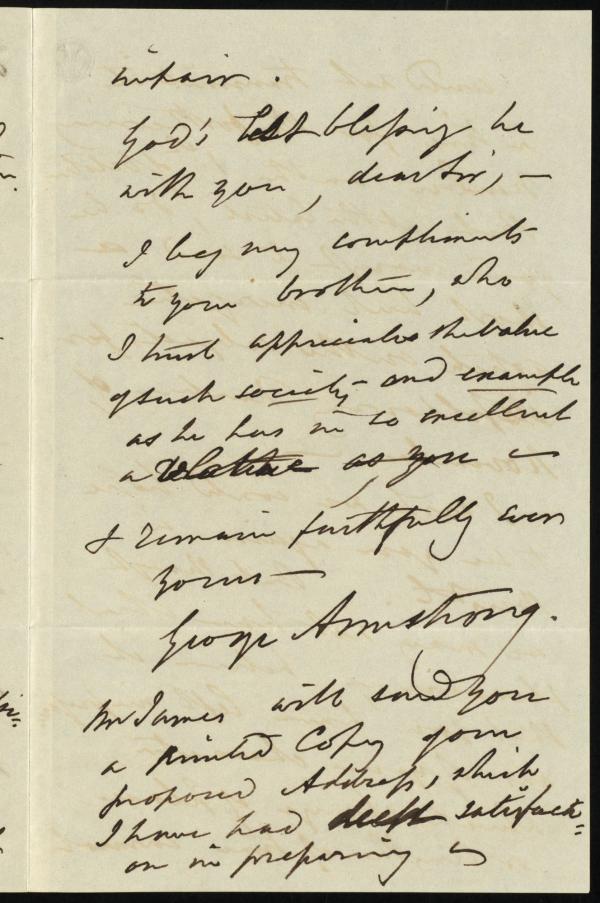 impair.
God's best blessing be
with you, dear Sir, —
I beg my compliments
to your brother, who
I trust appreciates the value
of such society — and example
as he has in so excellent
a relative as you —
I remain faithfully ever
yours —
George Armstrong.
Mr James will send you
a printed Copy of our
proposed Address, which
I have had deep satisfact=
on in preparing